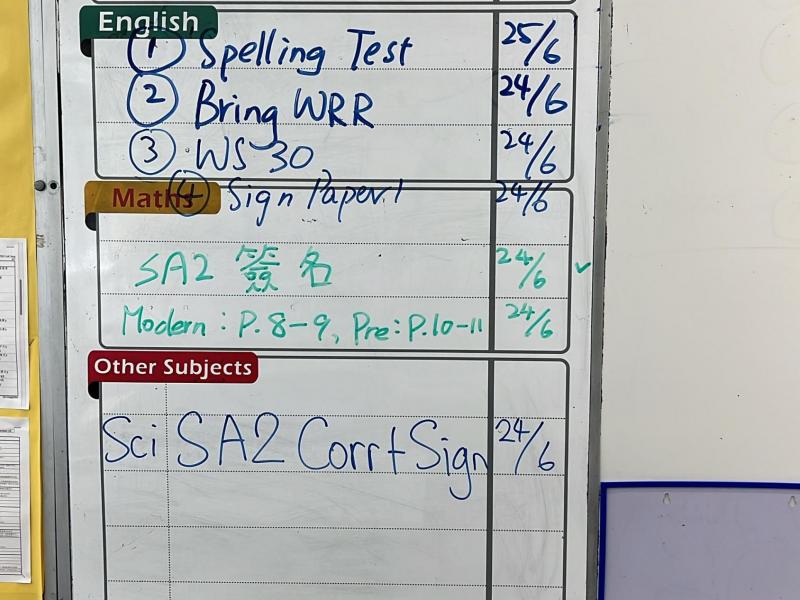 English
① Spelling Test 25/6
② Bring WRR 24/6
③ WS 30 24/6
Maths
④ Sign Paper 1 24/6
SA2 簽名 24/6 ✓
Modern : P.8-9, Pre: P.10-11 24/6
Other Subjects
Sci SA2 Corr+Sign 24/6